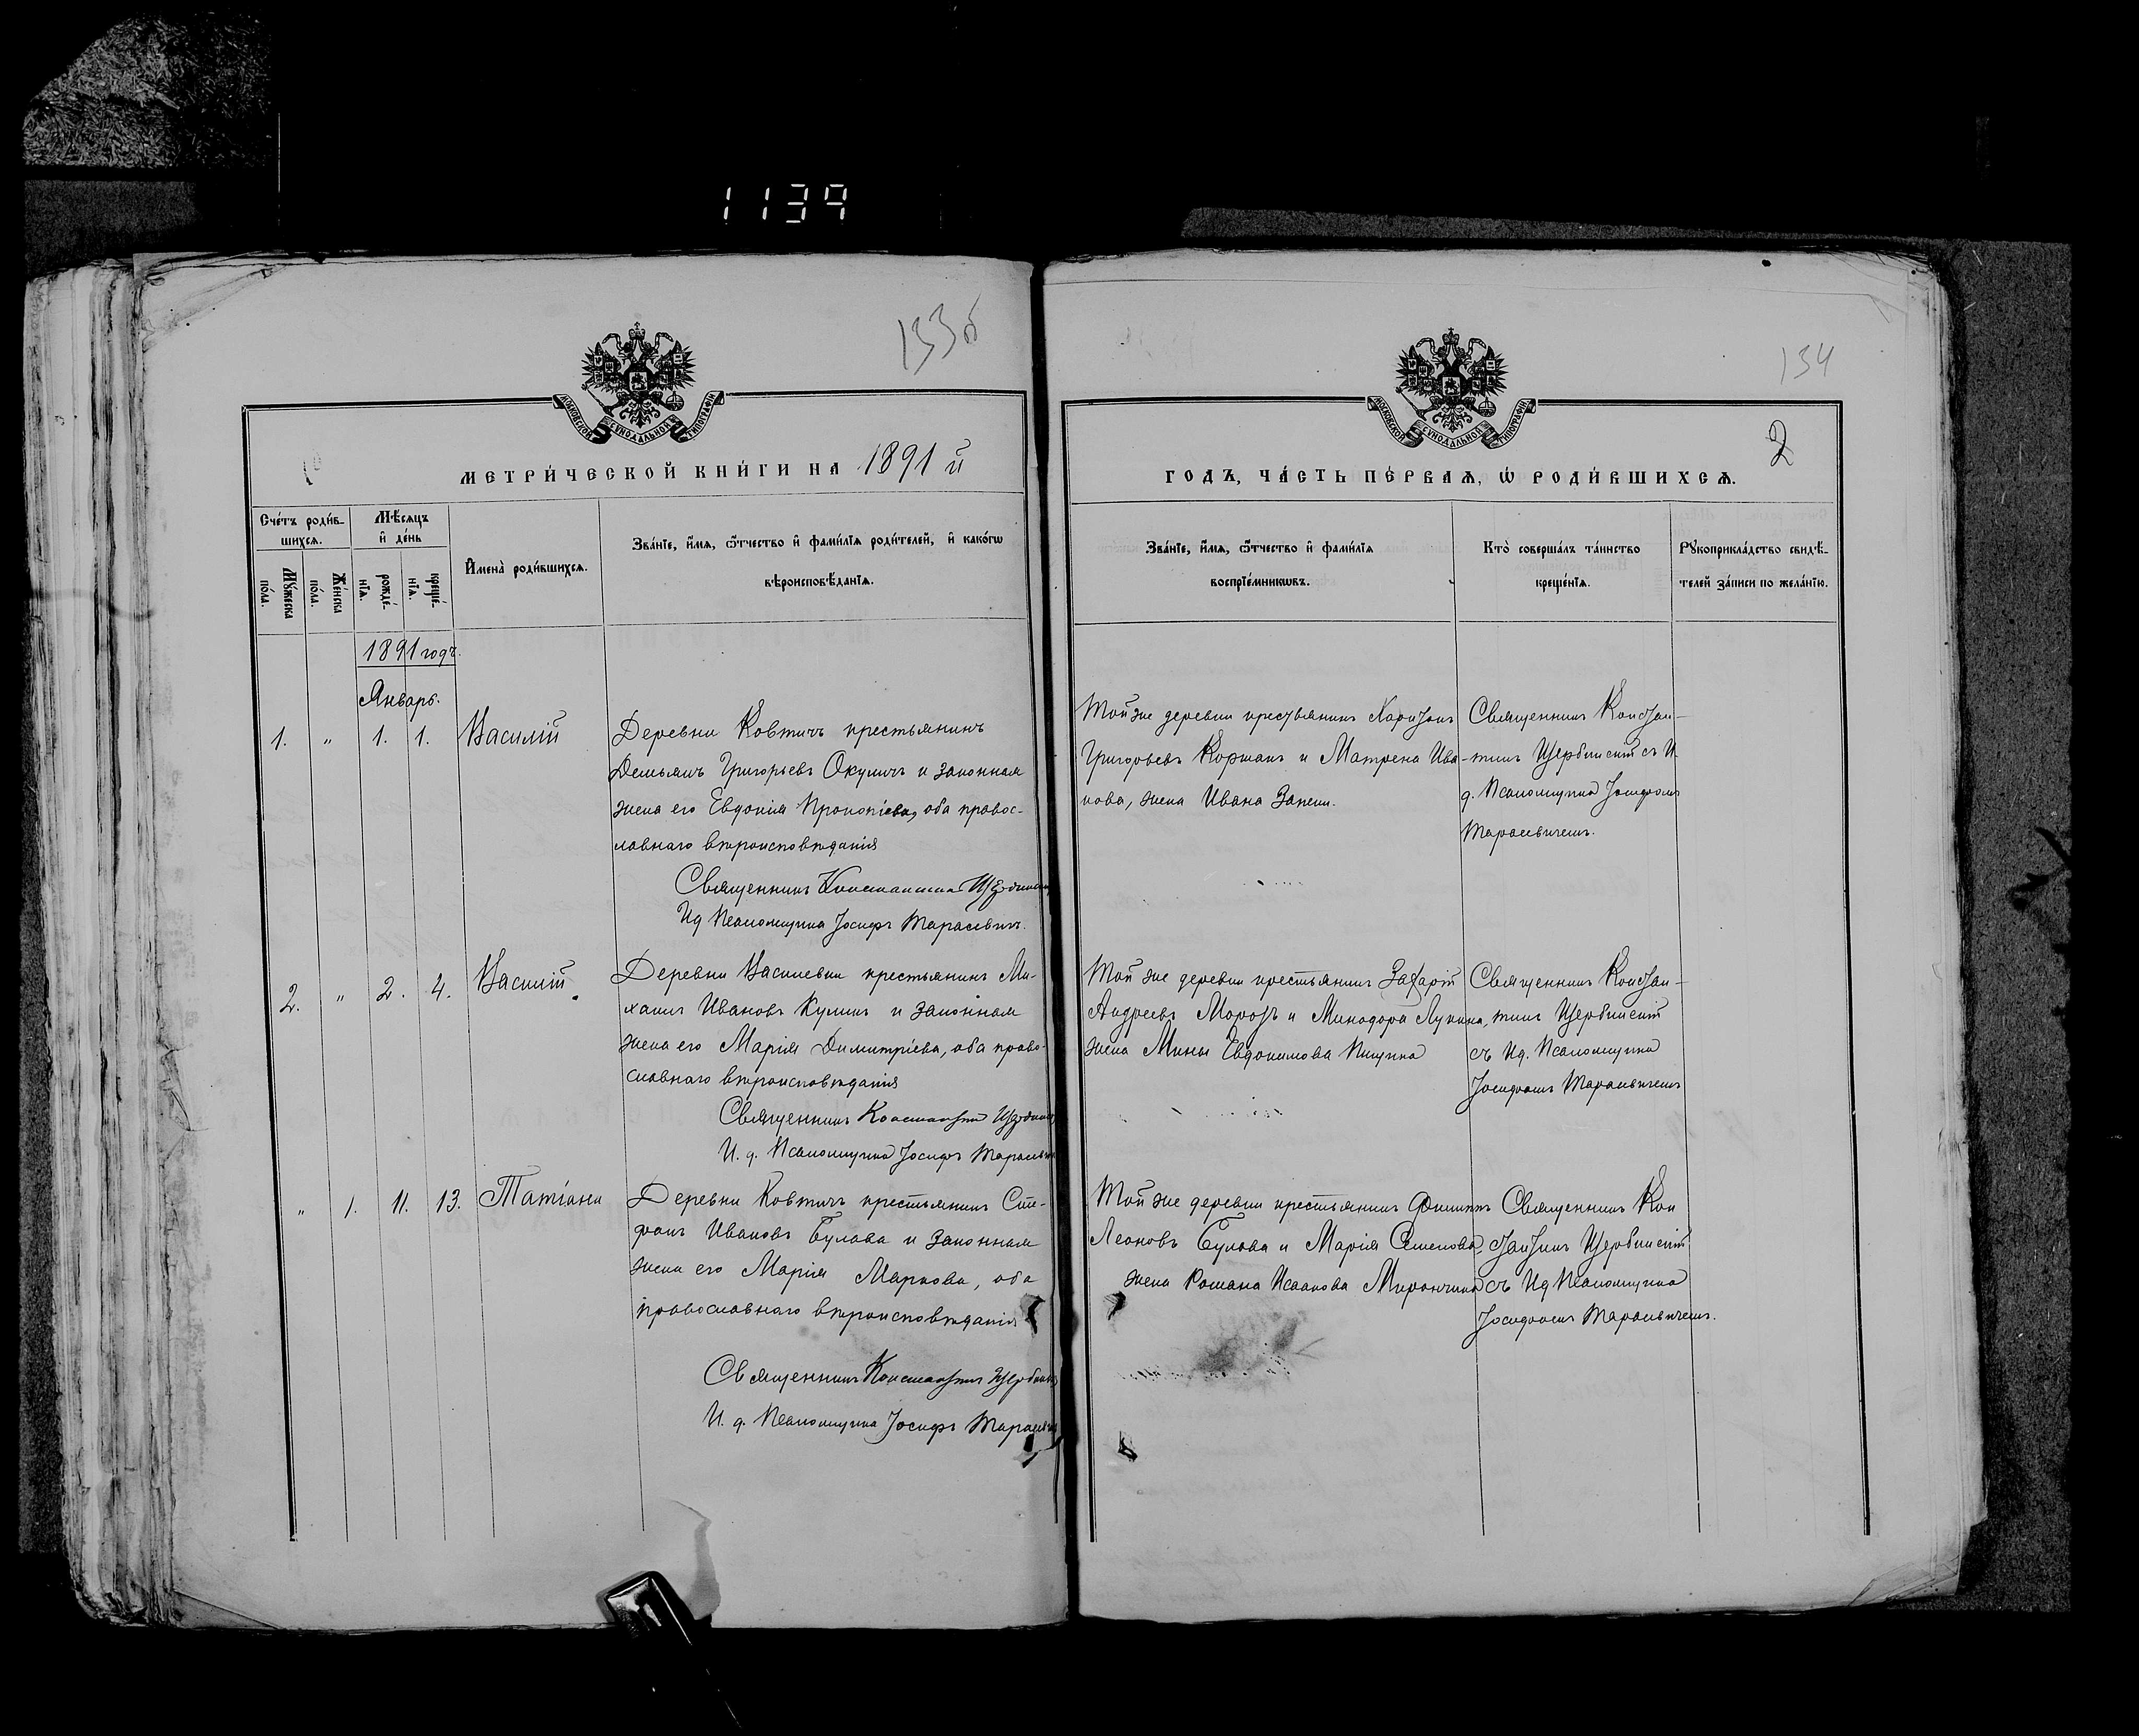 1139
133б
МОСКОВСКОЙ СѴНОДАЛЬНОЙ ТИПОГРАФІИ
МЕТРИ́ЧЕСКОЙ КНИ́ГИ НА 1891 й
Сче́тъ роди́в-
шихсѧ.
Мѣ́сѧцъ
и҆ де́нь
Мꙋ́жеска
по́ла.
Же́нска
по́ла.
рожде́-
нїѧ.
креще́-
нїѧ.
И҆мена̀ роди́вшихсѧ.
Зва́нїе, и҆́мѧ, ѻ҆́тчество и҆ фами́лїѧ роди́телей, и҆ како́гѡ
вѣроисповѣ́данїѧ.
1891 годъ.
Январь.
1. " 1. 1. Василій
Деревни Ковтичъ крестьянинъ
Демьянъ Григорьевъ Окуличъ и законная
жена его Евдокія Прокопіева, оба правос-
лавнаго вѣроисповѣданія
Священникъ Константинъ
Ид Псаломщика Іосифъ Тарасевичъ.
2. " 2. 4. Василій
Деревни Василевки крестьянинъ Ми-
хаилъ Ивановъ Кулишъ и законная
жена его Марія Димитріева, оба право-
славнаго вѣроисповѣданія
Священникъ Константинъ
И. д. Псаломщика Іосифъ
" 1. 11. 13. Татіана
Деревни Ковтичъ крестьянинъ Сте-
фанъ Ивановъ Булава и законная
жена его Марія Маркова, оба
православнаго вѣроисповѣданія
Священникъ Константинъ
И. д. Псаломщика Іосифъ
134
МОСКОВСКОЙ СѴНОДАЛЬНОЙ ТИПОГРАФІИ
2
ГОДЪ, ЧА́СТЬ ПЕ́РВАѦ, Ѡ҆ РОДИ́ВШИХСѦ.
Зва́нїе, и҆́мѧ, ѻ҆́тчество и҆ фами́лїѧ
воспрїе́мникѡвъ.
Кто̀ соверша́лъ та́инство
креще́нїѧ.
Рꙋкоприкла́дство свидѣ́-
телей за́писи по жела́нїю.
Той же деревни крестьянинъ Харитонъ
Григорьевъ Коржанъ и Матрена Ива-
нова, жена Ивана
Священникъ Констан-
тинъ Щербинскій съ И.
д. Псаломщика Іосифомъ
Тарасевичемъ.
Той же деревни крестьянинъ Захарій
Андреевъ Морозъ и Минодора Лукина,
жена Мины Евдокимова
Священникъ Констан-
тинъ Щербинскій
съ Ид. Псаломщика
Іосифомъ Тарасевичемъ
Той же деревни крестьянинъ Филиппъ
Леоновъ Булава и Марія Семенова,
жена Романа Исаакова Мирончика
Священникъ Кон
стантинъ Щербинскій
съ Ид Псаломщика
Іосифомъ Тарасевичемъ.